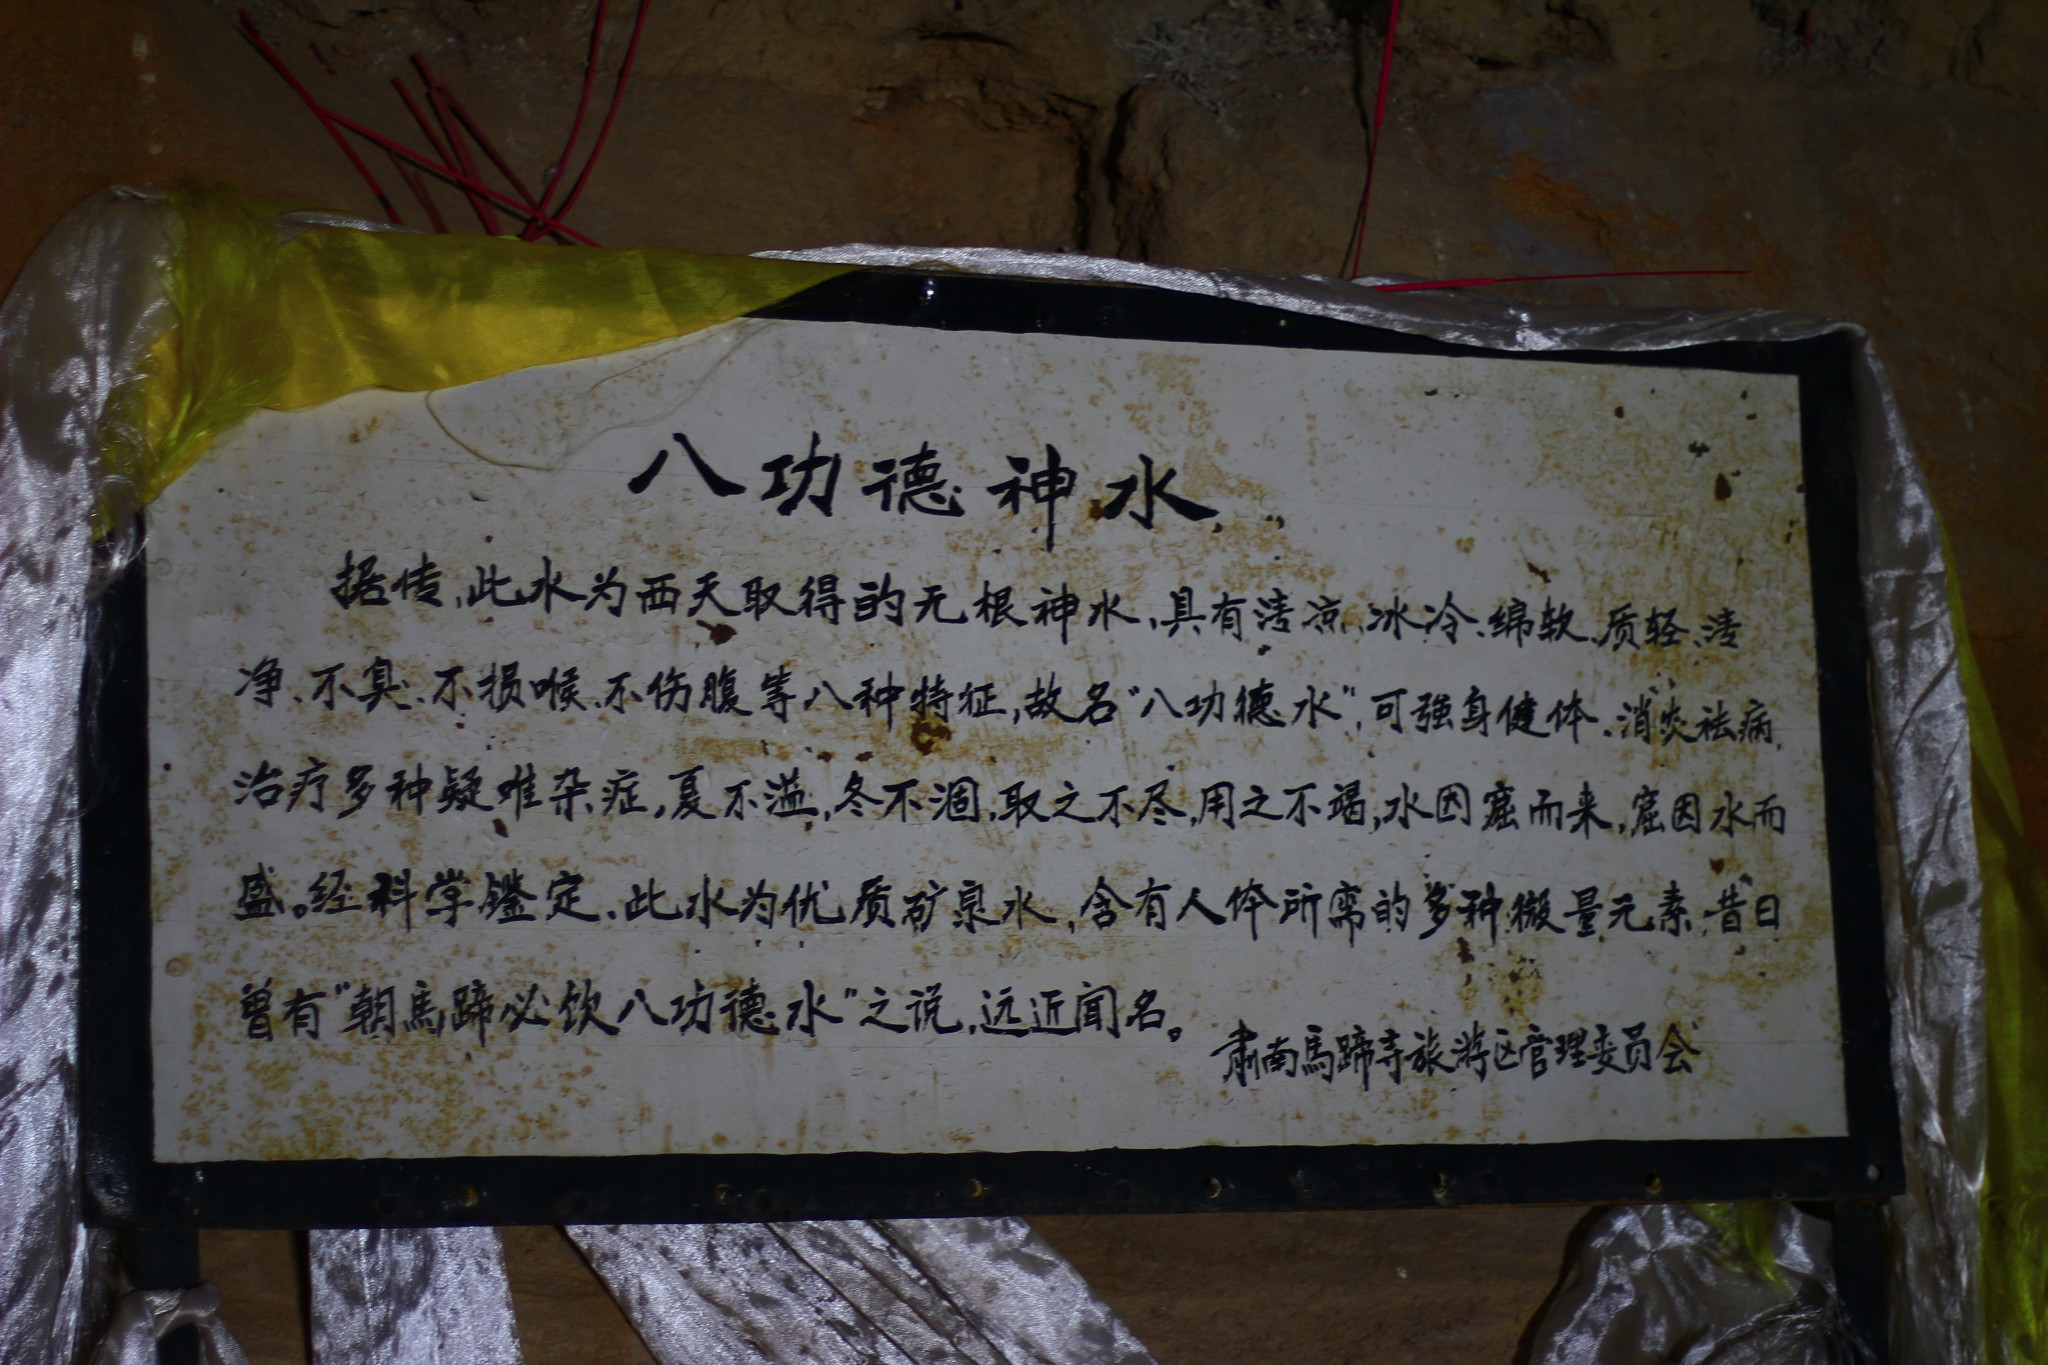 八功德神水
据传,此水为西天取得的无根神水,具有清凉、冰冷、绵软、质轻、清
净、不臭、不损喉、不伤腹等八种特征,故名"八功德水",可强身健体、消炎祛病,
治疗多种疑难杂症,夏不溢,冬不涸,取之不尽,用之不竭,水因窟而来,窟因水而
盛。经科学鉴定、此水为优质矿泉水,含有人体所需的多种微量元素,昔日
曾有"朝馬蹄必饮八功德水"之说,远近闻名。
肃南馬蹄寺旅游区管理委员会